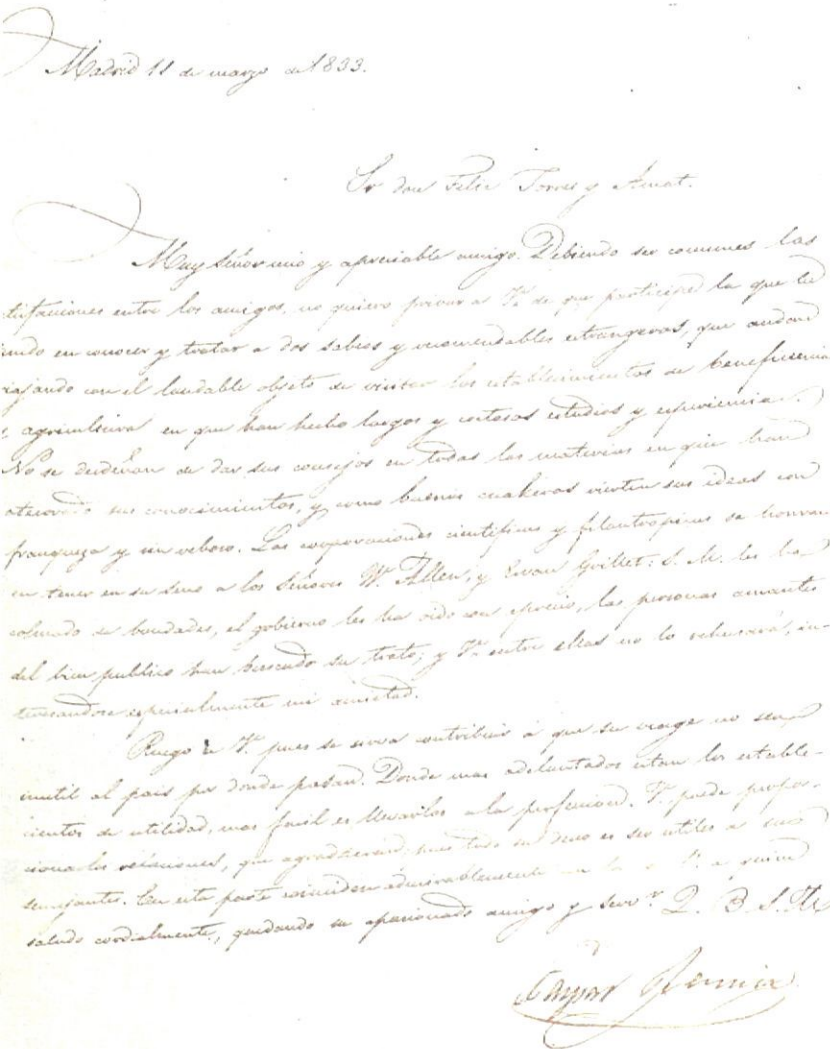 Madrid 11 de marzo de 1833.
Sr don Felix Torres y Amat.
Muy Señor mio y apreciable amigo. Debiendo ser comunes las
tisfacciones entre los amigos, no quiero privar a Vd. de que participe de la que he
en conocer y tratar a dos sabios y recomendables estrangeros, que andan
viajando con el laudable objeto de visitar los establecimientos de beneficencia
agricultura en que han hecho largos y costosos estudios y esperiencias.
No se desdeñan de dar sus consejos en todas las materias en que han
atesorado sus conocimientos, y como buenos cuakeros vierten sus ideas con
franqueza y sin rebozo. Las corporaciones cientificas y filantropicas se honran
en tener en su seno a los Señores W. Allen, y Grillet: S. M. les ha
colmado de bondades, el gobierno les ha oido con aprecio, las personas amantes
del bien publico han buscado su trato; y Vd. entre ellas no lo rehusará, in-
teresandose especialmente mi amistad.
Ruego a Vd. pues se sirva contribuir á que su viage no sea
inutil al pais por donde pasan. Donde mas adelantados estan los estable-
cientos de utilidad, mas facil es llevarlos a la perfeccion. Vd. puede propor-
cionarles relaciones, que agradeceran, pues todo su deseo es ser utiles a sus
semejantes. En esta parte coinciden admirablemente a Vd. a quien
saluda cordialmente, quedando su apasionado amigo y serv.r Q. B. S. M.
Gaspar